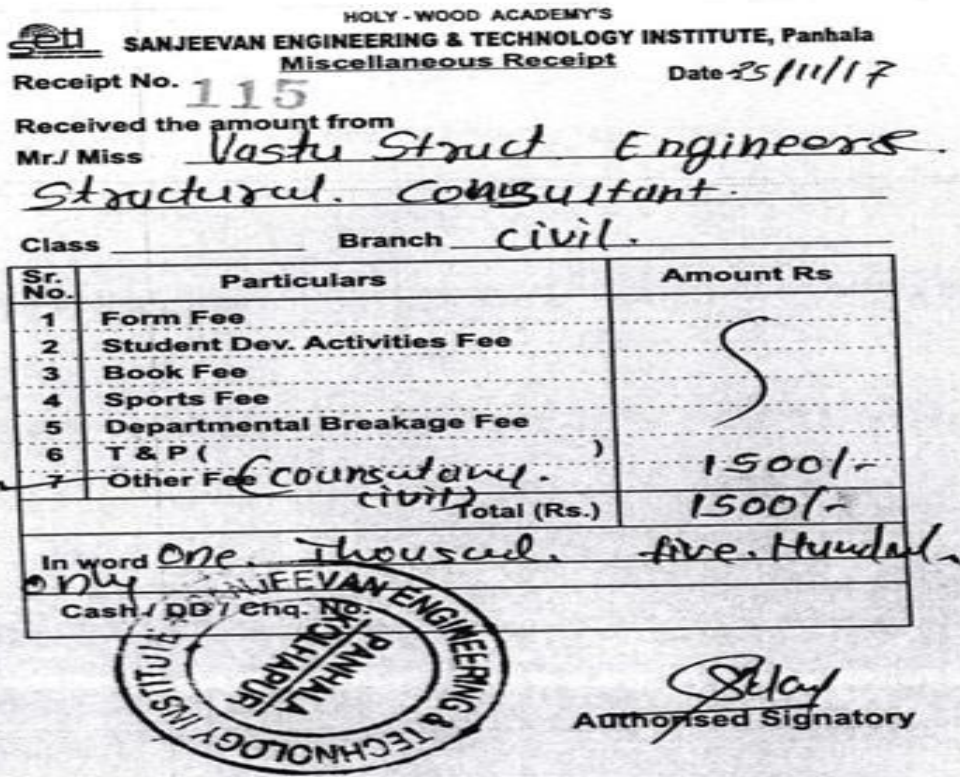 HOLY-WOOD ACADEMY'S
seti SANJEEVAN ENGINEERING & TECHNOLOGY INSTITUTE, Panhala
Miscellaneous Receipt
Receipt No. 115 Date 25/11/17
Received the amount from
Mr./ Miss Vastu Struct Engineers.
Structural. Consultant.
Class Branch Civil.
Sr. No. Particulars Amount Rs
1 Form Fee
2 Student Dev. Activities Fee
3 Book Fee
4 Sports Fee
5 Departmental Breakage Fee
6 T & P ( )
7 Other Fee (Counsutancy. 1500/-
civil) Total (Rs.) 1500/-
In word One. Thousand. five. Hundred
only
Cash / DD / Chq. No.
SANJEEVAN ENGINEERING & TECHNOLOGY INSTITUTE
PANHALA
KOLHAPUR
Authorised Signatory